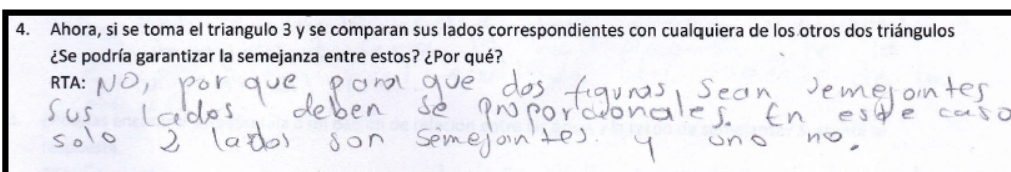 4. Ahora, si se toma el triangulo 3 y se comparan sus lados correspondientes con cualquiera de los otros dos triángulos
¿Se podría garantizar la semejanza entre estos? ¿Por qué?
RTA: NO, por que para que dos figuras, sean semejantes
sus lados deben se proporcionales. En este caso
solo 2 lados son semejantes. y uno no.